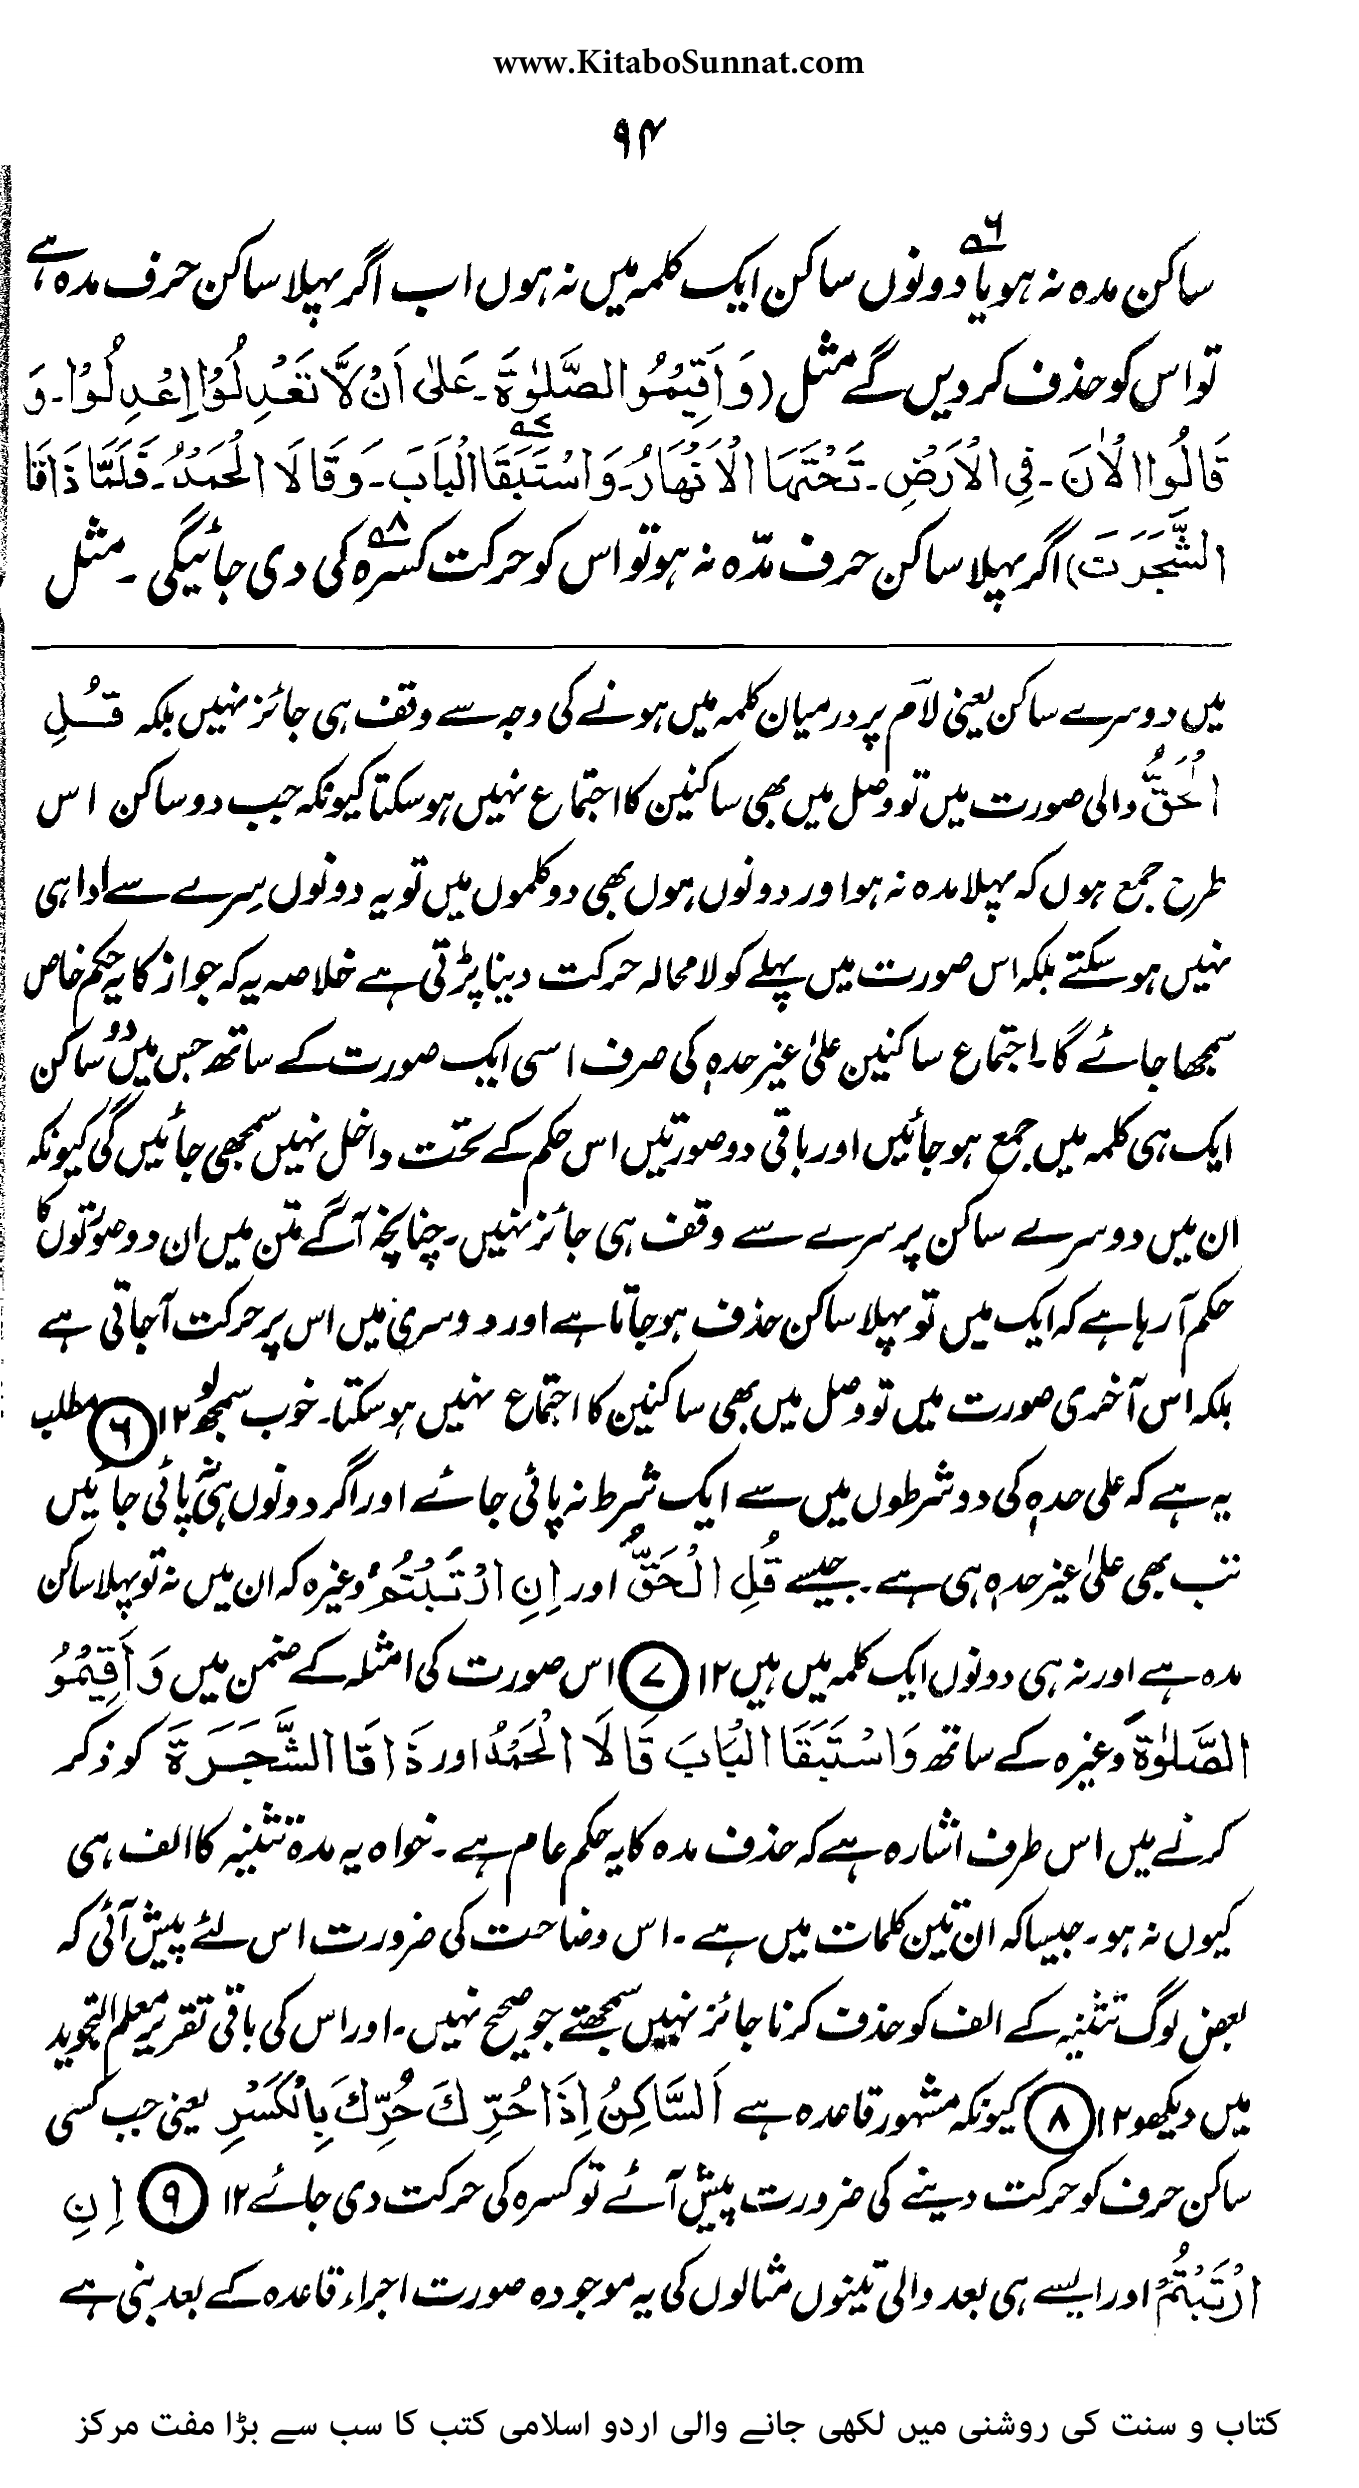 www.KitaboSunnat.com
۹۴
ساکن مدہ نہ ہو یا۶؎ دونوں ساکن ایک کلمہ میں نہ ہوں اب اگر پہلا ساکن حرف مدہ ہے،
تو اس کو حذف کر دیں گے مثل (وَاَقِیْمُوا الصَّلٰوۃَ۔ عَلٰی اَنْ لَّا تَعْدِلُوْا اِعْدِلُوْا۔ وَ
قَالُوا الْاٰنَ۔ فِی الْاَرْضِ۔ تَحْتَہَا الْاَنْھَارُ۔ وَاسْتَبَقَا۷؎ الْبَابَ۔ وَقَالَا الْحَمْدُ۔ فَلَمَّا ذَاقَا
الشَّجَرَتَ) اگر پہلا ساکن حرف مدّہ نہ ہو تو اس کو حرکت کسرہ۸؎ کی دی جائیگی ۔ مثل
میں دوسرے ساکن یعنی لاَم پر درمیان کلمہ میں ہونے کی وجہ سے وقف ہی جائز نہیں بلکہ قُلِ
الْحَقُّ والی صورت میں تو وصل میں بھی ساکنین کا اجتماع نہیں ہو سکتا کیونکہ جب دو ساکن اس
طرح جمع ہوں کہ پہلا مدہ نہ ہو اور دونوں ہوں بھی دو کلموں میں تو یہ دونوں سِرے سے ادا ہی
نہیں ہو سکتے بلکہ اس صورت میں پہلے کو لا محالہ حرکت دینا پڑتی ہے خلاصہ یہ کہ جواز کا یہ حکم خاص
سمجھا جائے گا۔ اجتماع ساکنین علیٰ غیر حدہٖ کی صرف اسی ایک صورت کے ساتھ جس میں دو ساکن
ایک ہی کلمہ میں جمع ہو جائیں اور باقی دو صورتیں اس حکم کے تحت داخل نہیں سمجھی جائیں گی کیونکہ
ان میں دوسرے ساکن پر سرے سے وقف ہی جائز نہیں۔ چنانچہ آگے متن میں ان دو صورتوں کا
حکم آ رہا ہے کہ ایک میں تو پہلا ساکن حذف ہو جاتا ہے اور دوسری میں اس پر حرکت آجاتی ہے
بلکہ اس آخری صورت میں تو وصل میں بھی ساکنین کا اجتماع نہیں ہو سکتا۔ خوب سمجھ لو ۱۲ ۶ مطلب
یہ ہے کہ علی حدہٖ کی دو شرطوں میں سے ایک شرط نہ پائی جائے اور اگر دونوں ہی نہ پائی جائیں
تب بھی علیٰ غیر حدہٖ ہی ہے ۔ جیسے قُلِ الْحَقُّ اور اِنِ ارْتَبْتُمْ وغیرہ کہ ان میں نہ تو پہلا ساکن
مدہ ہے اور نہ ہی دونوں ایک کلمہ میں ہیں ۱۲ ۷ اس صورت کی امثلہ کے ضمن میں وَاَقِیْمُوا
الصَّلٰوۃَ وغیرہ کے ساتھ وَاسْتَبَقَا الْبَابَ قَالَا الْحَمْدُ اور ذَاقَا الشَّجَرَۃَ کو ذکر
کرنے میں اس طرف اشارہ ہے کہ حذف مدہ کا یہ حکم عام ہے ۔ خواہ یہ مدہ تثنیہ کا الف ہی
کیوں نہ ہو۔ جیسا کہ ان تین کلمات میں ہے ۔ اس وضاحت کی ضرورت اس لئے پیش آئی کہ
بعض لوگ تثنیہ کے الف کو حذف کرنا جائز نہیں سمجھتے جو صحیح نہیں۔ اور اس کی باقی تقریر معلم التجوید
میں دیکھو ۱۲ ۸ کیونکہ مشہور قاعدہ ہے اَلسَّاکِنُ اِذَا حُرِّكَ حُرِّكَ بِالْکَسْرِ یعنی جب کسی
ساکن حرف کو حرکت دینے کی ضرورت پیش آئے تو کسرہ کی حرکت دی جائے ۱۲ ۹ اِنِ
ارْتَبْتُمْ اور ایسے ہی بعد والی تینوں مثالوں کی یہ موجودہ صورت اجراء قاعدہ کے بعد بنی ہے
کتاب و سنت کی روشنی میں لکھی جانے والی اردو اسلامی کتب کا سب سے بڑا مفت مرکز